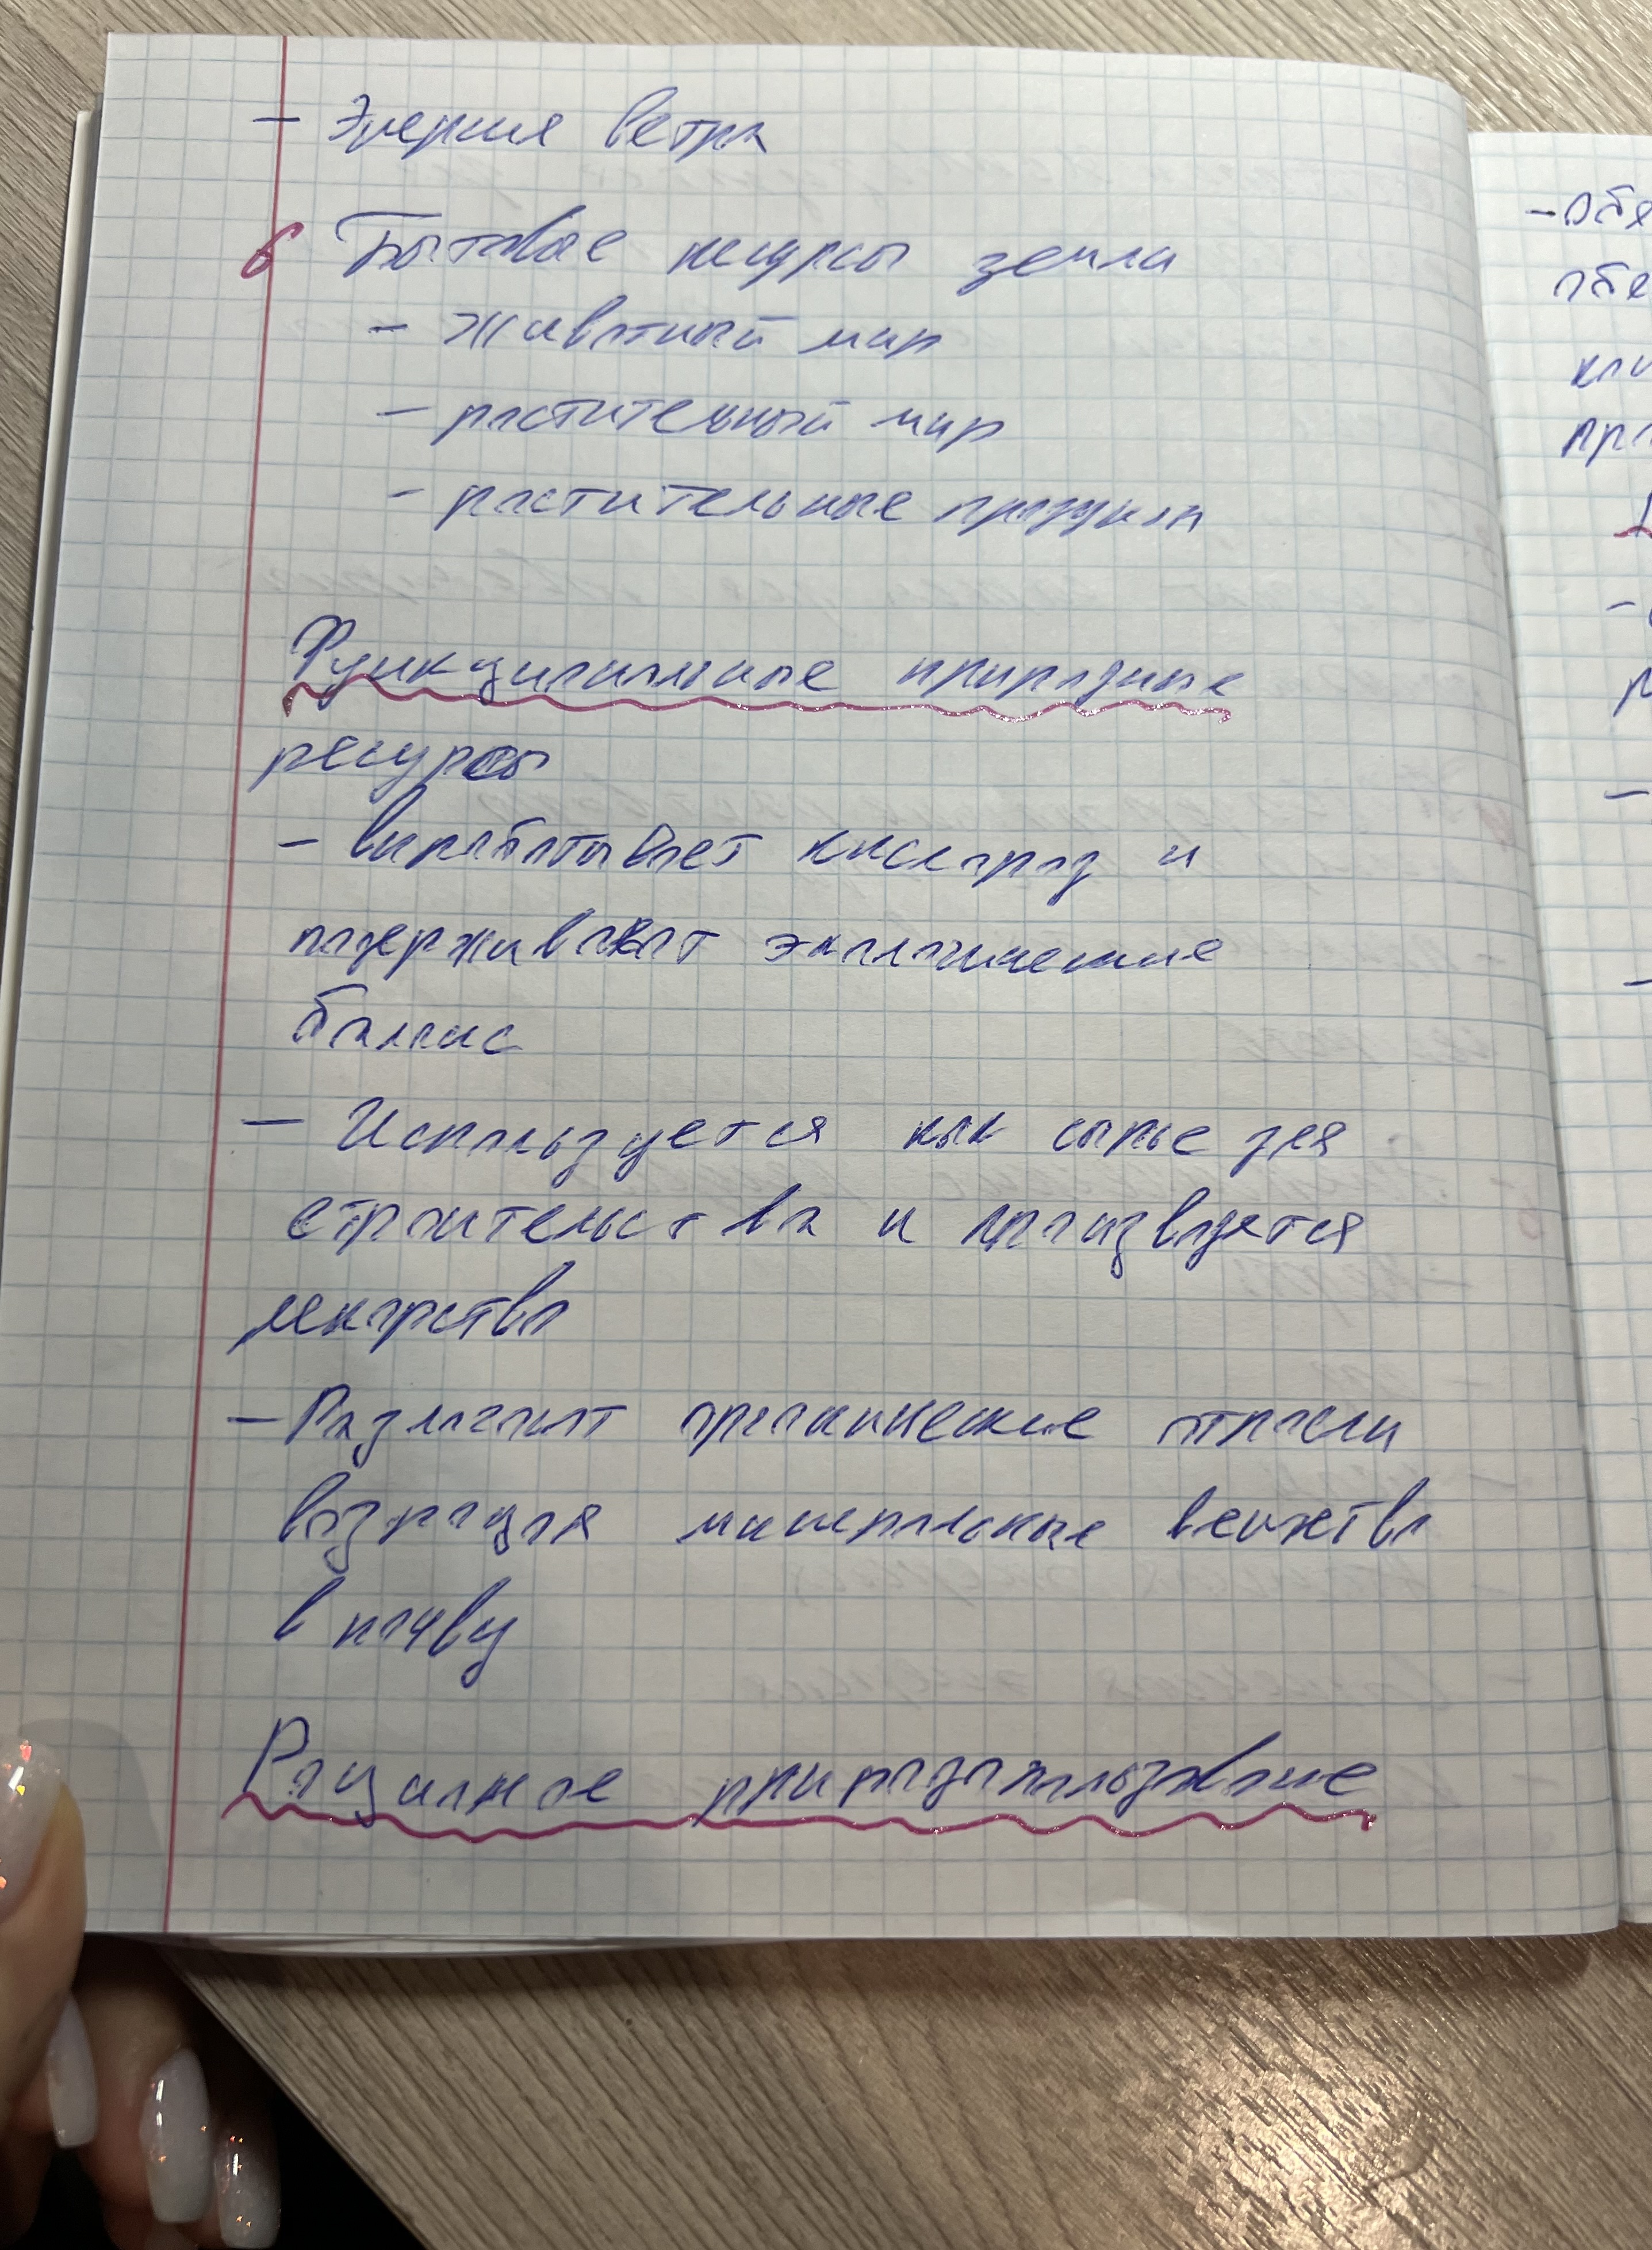 - Энергия ветра
6 Бытовые ресурсы земли
- животный мир
- растительный мир
- растительные
Функциональные природные
ресурсы
- вырабатывает кислород и
подерживают экологические
баланс
- Используется как сырье для
строительства и производятся
лекарства
- Разлагают органические отрасли
возращая минеральные вещества
в почву
Рациолное природопользование
- обя
обе
кли
про